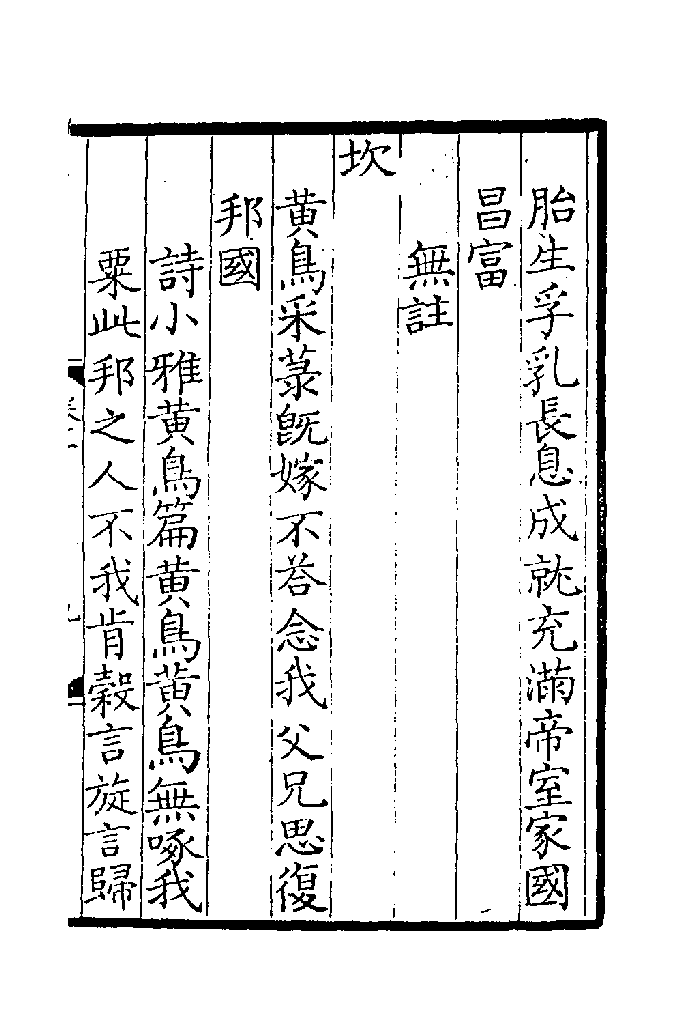 胎生孚乳長息成就充滿帝室家國
昌富
無註
坎
黄鳥采菉旣嫁不荅念我父兄思復
邦國
詩小雅黄鳥篇黄鳥黄鳥無啄我
粟此邦之人不我肯穀言旋言歸